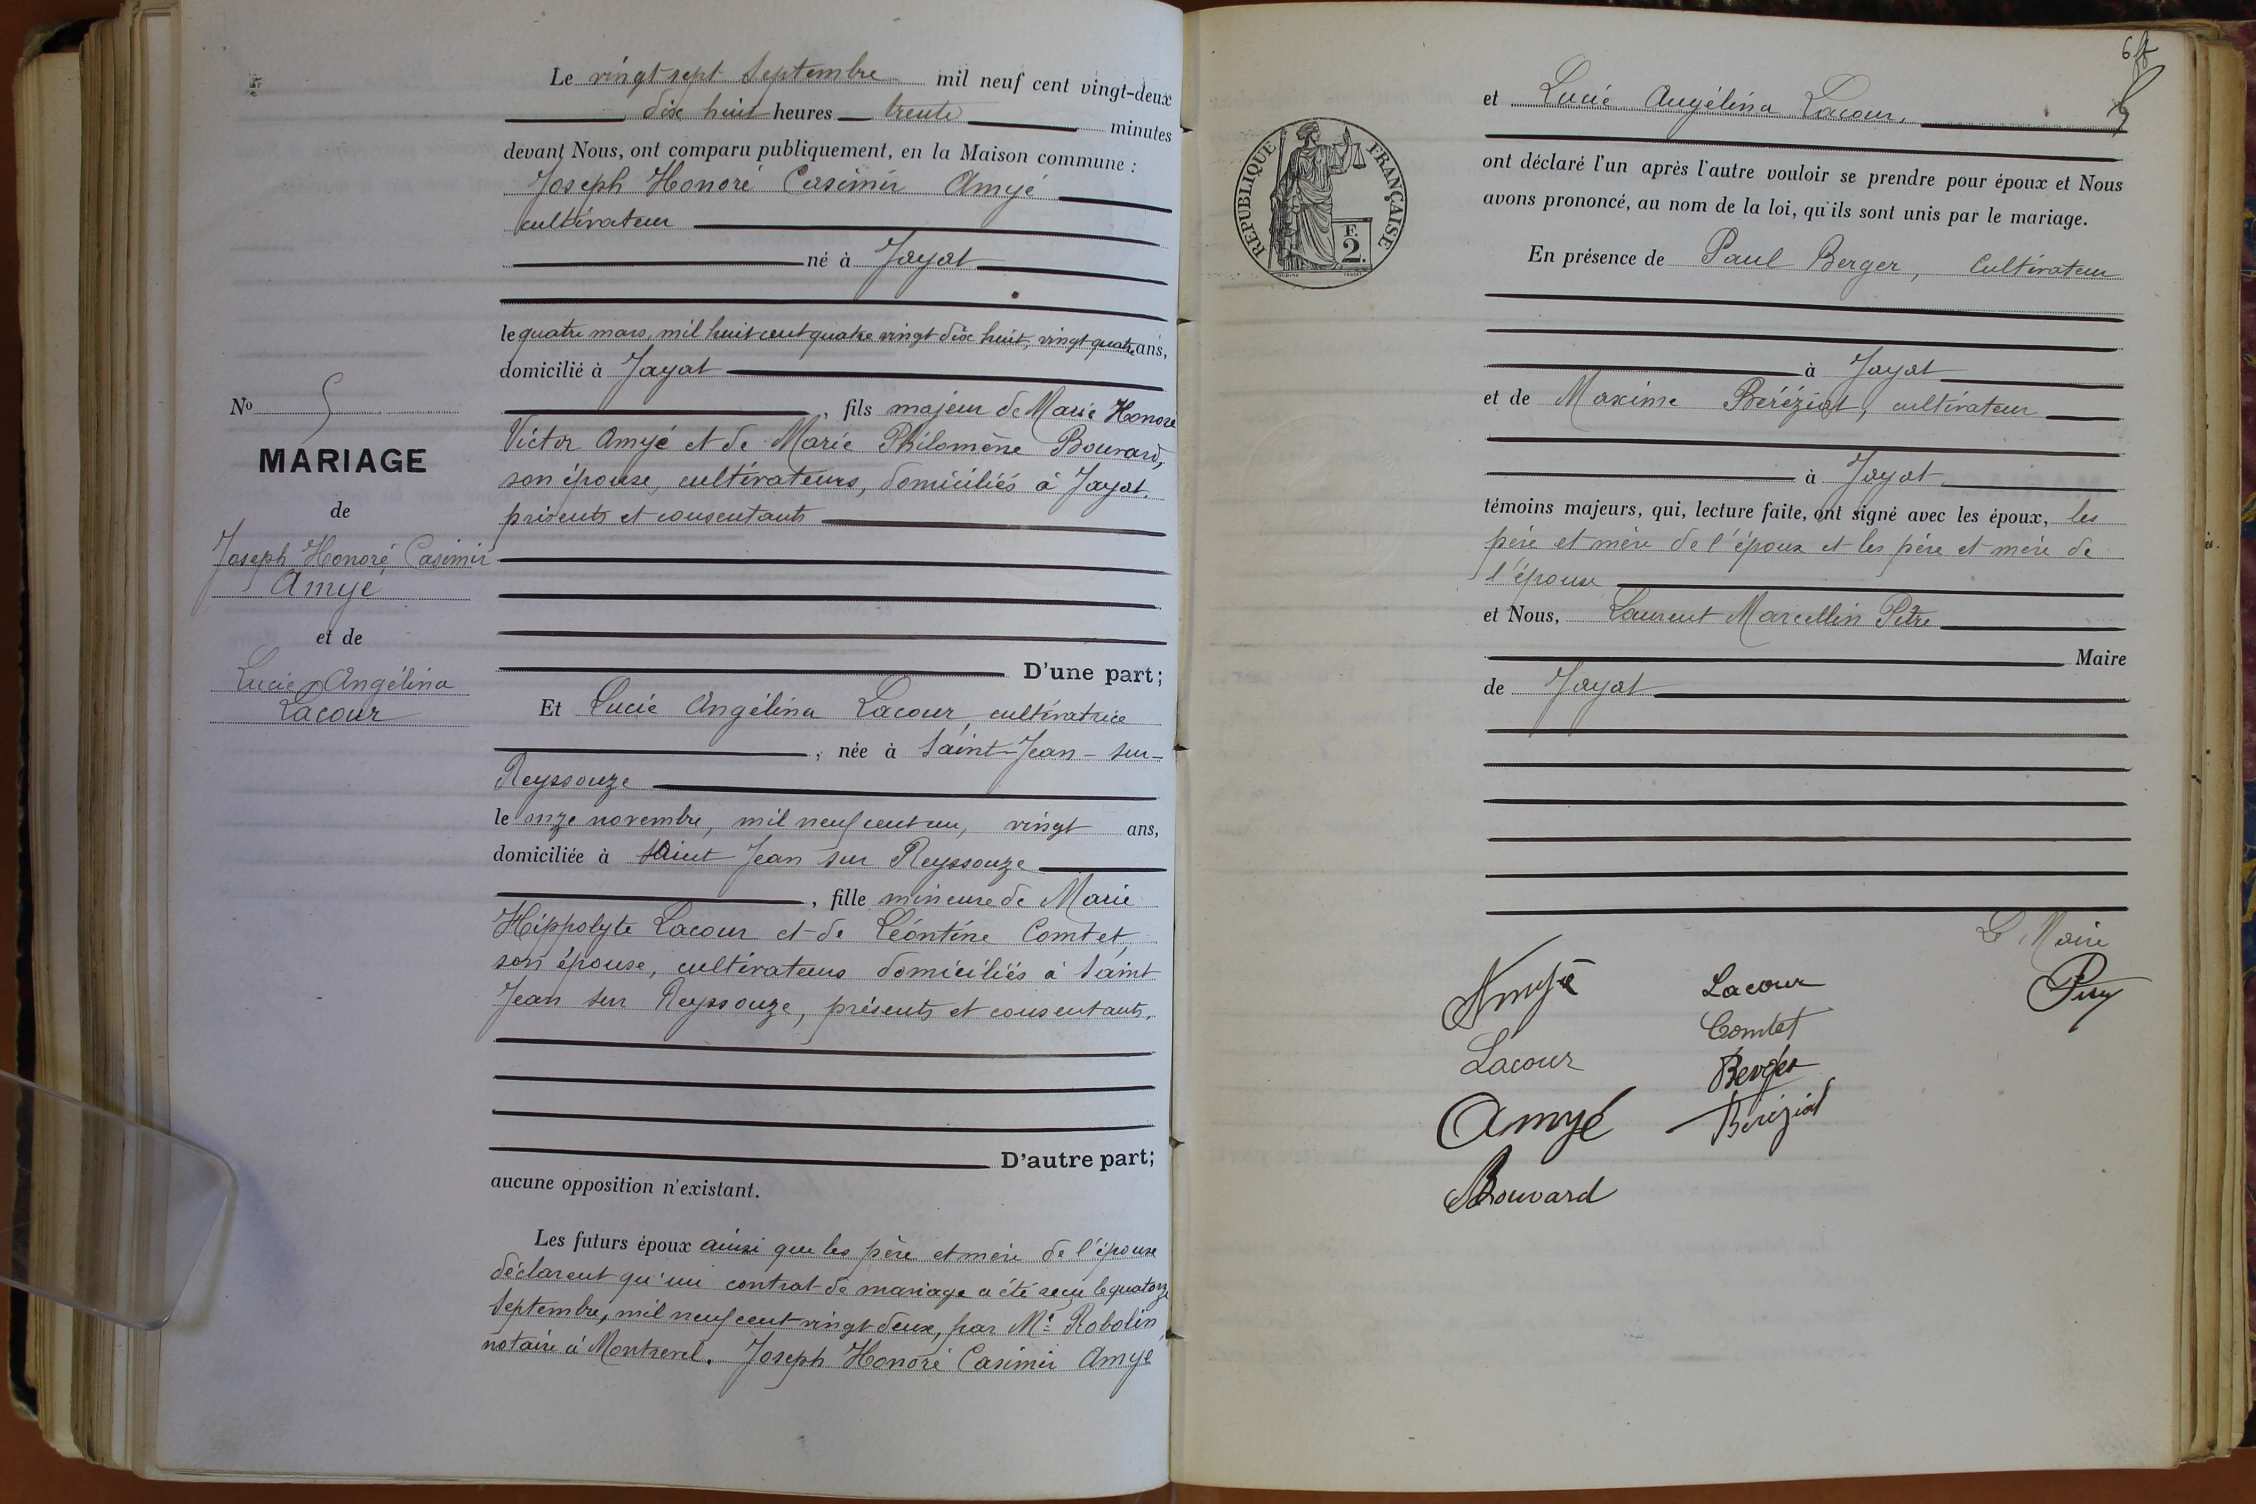 Le vingt sept Septembre mil neuf cent vingt-deux
dix huit heures trente minutes
devant Nous, ont comparu publiquement, en la Maison commune :
Joseph Honoré Casimir Amyé
cultivateur
né à Jayat
le quatre mars, mil huit cent quatre vingt dix huit, vingt quatre ans,
domicilié à Jayat
, fils majeur de Marie Honoré
Victor Amyé et de Marie Philomène Bouvard,
son épouse, cultivateurs, domiciliés à Jayat.
présents et consentants
No 5
MARIAGE
de
Joseph Honoré Casimir
Amyé
et de
Lucie Angélina
Lacour
D'une part;
Et Lucie Angélina Lacour, cultivatrice
, née à Saint-Jean-sur-
Reyssouze
le onze novembre, mil neuf cent un, vingt ans,
domiciliée à Saint Jean sur Reyssouze
, fille mineure de Marie
Hippolyte Lacour et de Léontine Comtet,
son épouse, cultivateurs domiciliés à Saint
Jean sur Reyssouze, présents et consentants.
D'autre part;
aucune opposition n'existant.
Les futurs époux ainsi que les père et mère de l'épouse
déclarent qu'un contrat de mariage a été reçu le quatorze
Septembre, mil neuf cent vingt deux, par Me Robolin,
notaire à Montrevel. Joseph Honoré Casimir Amyé
et Lucie Angélina Lacour.
ont déclaré l'un après l'autre vouloir se prendre pour époux et Nous
avons prononcé, au nom de la loi, qu'ils sont unis par le mariage.
RÉPUBLIQUE FRANÇAISE
F.
2.
En présence de Paul Berger, Cultivateur
à Jayat
et de Maxime Béréziat, cultivateur
à Jayat
témoins majeurs, qui, lecture faite, ont signé avec les époux, les
père et mère de l'époux et les père et mère de
l'épouse
et Nous, Laurent Marcellin Pitre
Maire
de Jayat
Le Maire
Amyé Lacour
Lacour Comtet
Amyé Berger
Bouvard Béréziat